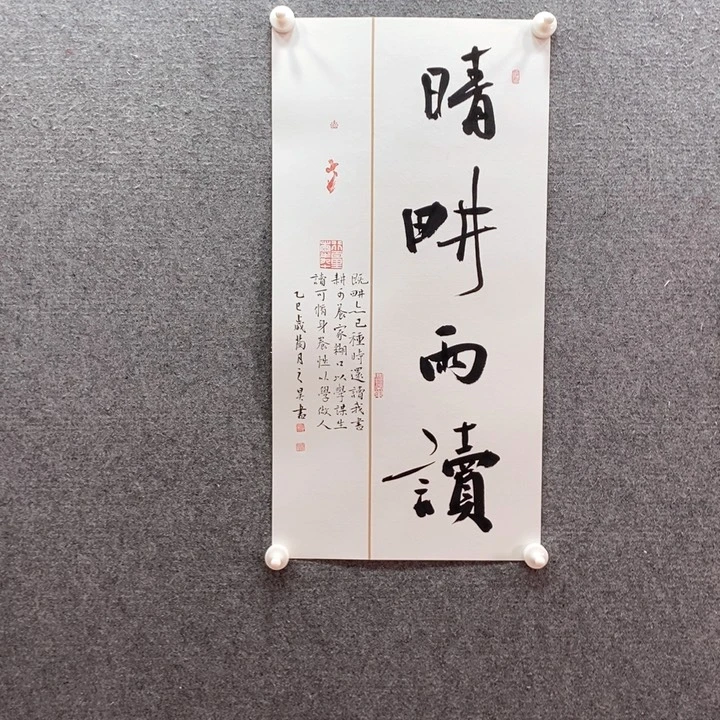 晴畊雨讀
既畊亦已種時還讀我書
耕可養家糊口以學謀生
讀可脩身養性以學做人
乙巳歲蘭月之昊書